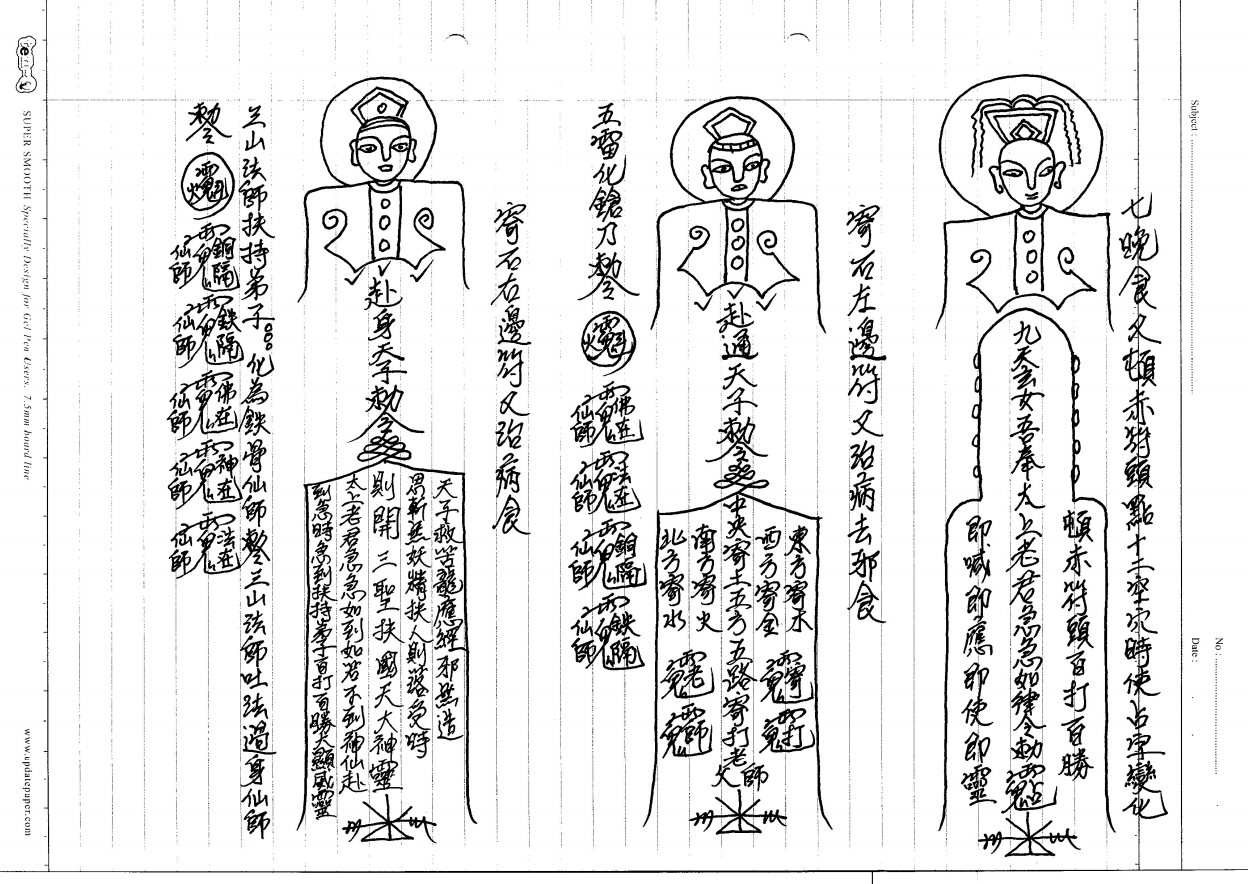 七晚食又頓赤符頭點十二空穴時使占字變化
頓赤符頭百打百勝
九天玄女吾奉太上老君急急如律令勅
即喊即應即使即靈
寄石左邊符又治病去邪食
赴通天子勅令
東方寄木
西方寄金
中央寄土五方五路寄打老師父
南方寄火
北方寄水
五雷化鎗乃勅令
佛在
仙師
法在
仙師
銅隔
仙師
鉄隔
仙師
寄石右邊符又治病食
赴身天子勅令
天子救苦龍應經邪然造
思斬然妖精扶人則落急時
則開三聖扶國天大神靈
太上老君急急如到如若不到神仙赴
到急時急到扶持弟子百打百勝大顯威靈
三山法師扶持弟子○○○化為鉄骨仙師勅令三山法師吐法過身仙師
勅令
銅隔
仙師
鉄隔
仙師
佛在
仙師
神在
仙師
法在
仙師
Subject :
No :
Date :
SUPER SMOOTH Specially Design for Gel Pen Users. 7.5mm board line
www.updatepaper.com